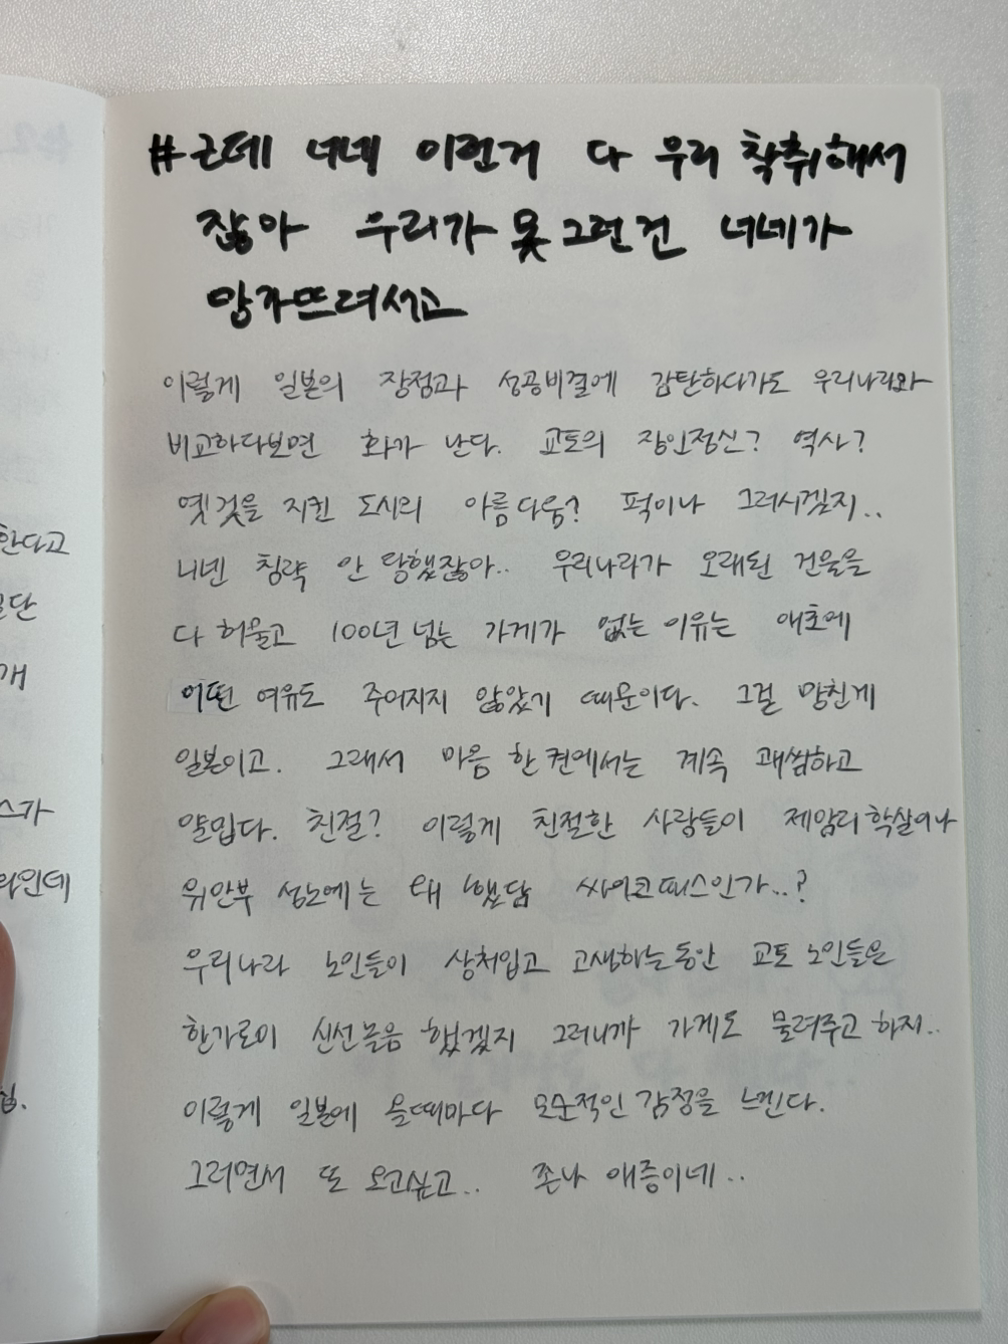 #근데 너네 이런거 다 우리 착취해서
잖아 우리가 못 그런 건 너네가
망가뜨려서고
이렇게 일본의 장점과 성공비결에 감탄하다가도 우리나라와
비교하다보면 화가 난다. 교토의 장인정신? 역사?
옛것을 지킨 도시의 아름다움? 퍽이나 그러시겠지..
니넨 침략 안 당했잖아.. 우리나라가 오래된 건물을
다 허물고 100년 넘는 가게가 없는 이유는 애초에
어떤 여유도 주어지지 않았기 때문이다. 그걸 망친게
일본이고. 그래서 마음 한 켠에서는 계속 괘씸하고
얄밉다. 친절? 이렇게 친절한 사람들이 제암리 학살이나
위안부 성노예는 왜 했담 싸이코패스인가..?
우리나라 노인들이 상처입고 고생하는 동안 교토 노인들은
한가로이 신선놀음 했겠지 그러니까 가게도 물려주고 하지..
이렇게 일본에 올때마다 모순적인 감정을 느낀다.
그러면서 또 오고싶고.. 존나 애증이네..
한다고
일단
개
스가
라인데